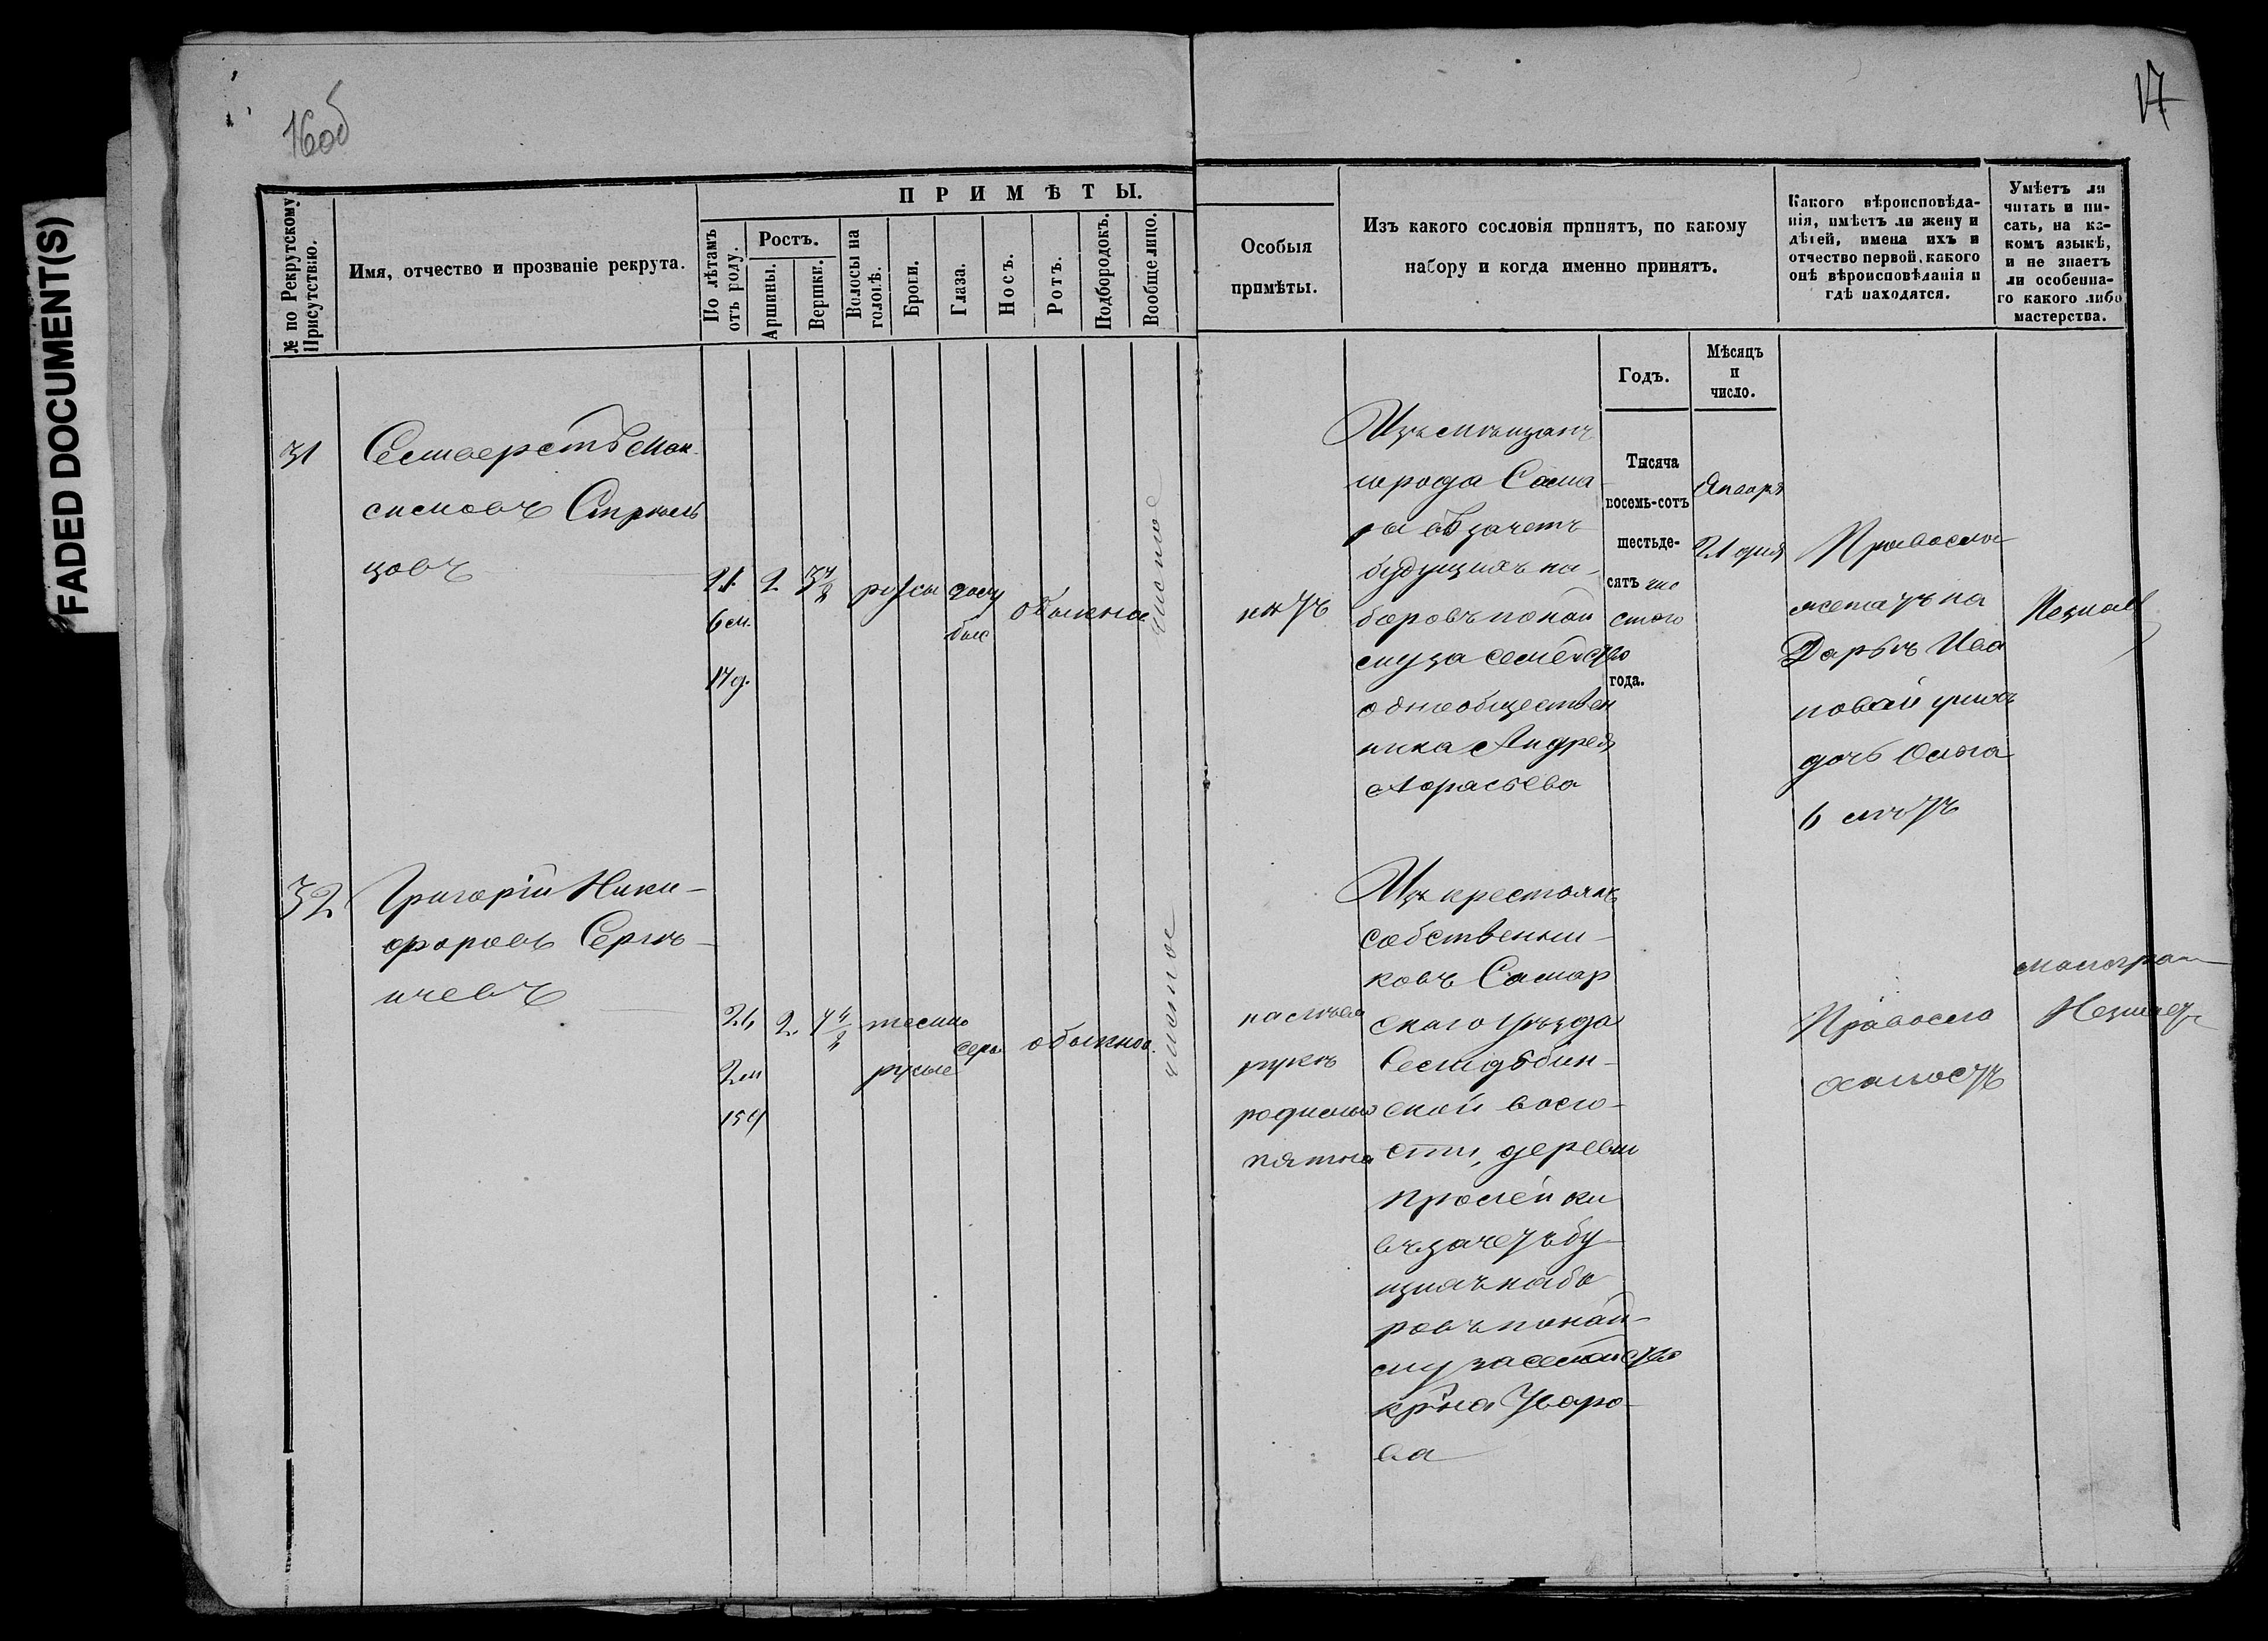 FADED DOCUMENT(S)
16об
17
№ по Рекрутскому Присутствію.
Имя, отчество и прозваніе рекрута.
ПРИМѢТЫ.
По лѣтамъ отъ роду.
Ростъ.
Аршины.
Вершки.
Волосы на головѣ.
Брови.
Глаза.
Носъ.
Ротъ.
Подбородокъ.
Вообще лицо.
Особыя
примѣты.
Изъ какого сословія принятъ, по какому
набору и когда именно принятъ.
Какого вѣроисповѣда-
нія, имѣетъ ли жену и
дѣтей, имена ихъ и
отчество первой, какого
онѣ вѣроисповѣданія и
гдѣ находятся.
Умѣетъ ли
читать и пи-
сать, на ка-
комъ языкѣ,
и не знаетъ
ли особенна-
го какого либо
мастерства.
Годъ.
Мѣсяцъ
и
число.
31
Мак
симовъ Стрѣль
цовъ
21
6 м.
14 д.
2
русы
голу
бые
обыкнов
чистое
нѣтъ
Изъ мѣщанъ
города Сама
ры въ зачетъ
будущихъ на-
боровъ по най
му за семейство
однообществен
ника Андрея
Тысяча
восемь-сотъ
шестьде-
сятъ шес
стого
года.
Января
21 дня
Правосла
женатъ на
Дарьѣ Ива
новой у нихъ
дочь Ольга
6 лѣтъ
Незнает
32
Григорій Ники-
форовъ Сергѣ-
ичевъ
2 м
15 д
2
4
темно
русые
серы
обыкнов.
чистое
на лѣвой
рукѣ
родимыя
пятна
Изъ крестьянъ
собственни-
ковъ Самар
скаго уѣзда
ской воло-
сти, деревни
въ зачетъ бу-
щихъ набо
ровъ по най-
му за семейство
кр-на Уваро-
ва
Правосла
холостъ
малогра
Незнает